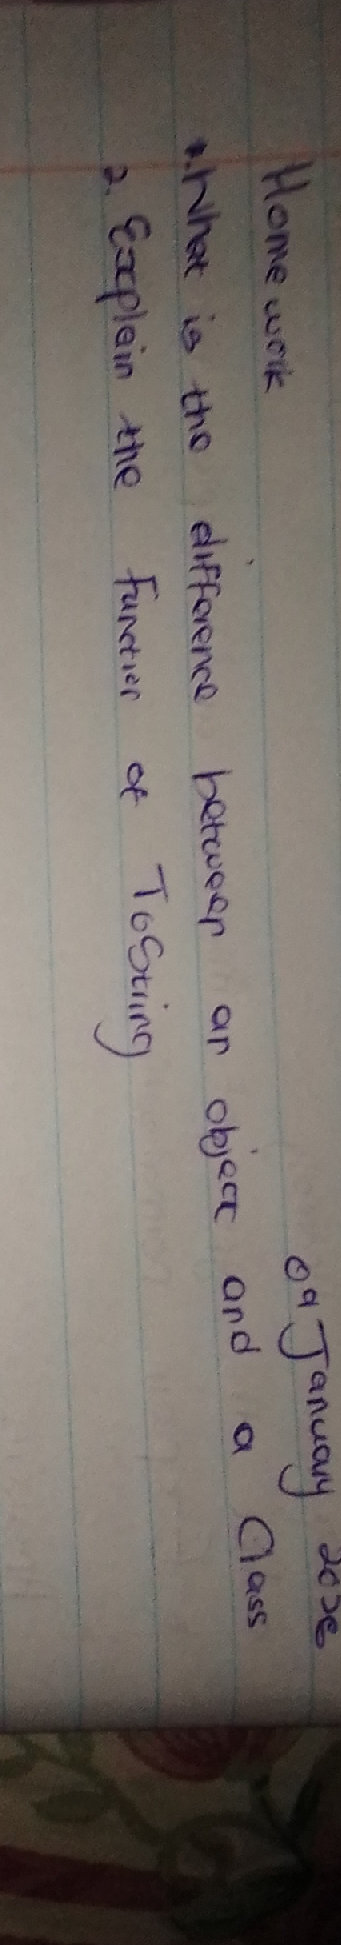 09 January 2026
Home work
1. What is the difference between an object and a Class
2. Explain the function of ToString